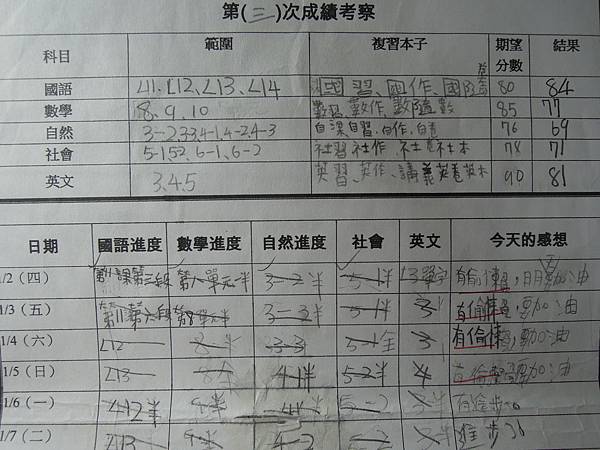 第(三)次成績考察
科目 範圍 複習本子 期望分數 結果
國語 L11、L12、L13、L14 國習、國作、國隨 80 84
數學 8.9.10 數習、數作、數隨 85 77
自然 3-2 3-3 4-1,4-2 4-3 自課自習、自作、自 76 69
社會 5-1 5-2、6-1、6-2 社習 社作、社 78 71
英文 3.4.5 英習、英作、講義 90 81
日期 國語進度 數學進度 自然進度 社會 英文 今天的感想
1/2 (四) 第三段 第八單元半 3-2半 5-1半 有偷懶,明天加油
1/3 (五) 第六段 第8單元半 3-2半 5-1半 3 有偷懶,要加油
1/4 (六) L12 8半 3-3 5-1全 3 有偷懶,加油
1/5 (日) L13 4-1半 5-2半 4 有偷懶要加油
1/6 (一) L12半 5-2 3半 有進步
1/7 (二) L13 4-2 5-2 3半 進步